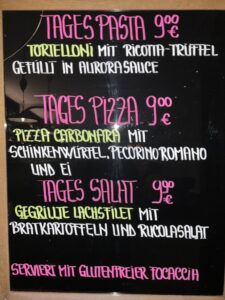 TAGES PASTA 9⁰⁰ €
TORTELLONI MIT RICOTTA-TRÜFFEL
GEFÜLLT IN AURORASAUCE
TAGES PIZZA 9⁰⁰ €
PIZZA CARBONARA MIT
SCHINKENWÜRFEL, PECORINO ROMANO
UND EI
TAGES SALAT 9⁹⁰ €
GEGRILLTE LACHSFILET MIT
BRATKARTOFFELN UND RUCOLASALAT
SERVIERT MIT GLUTENFREIER FOCACCIA